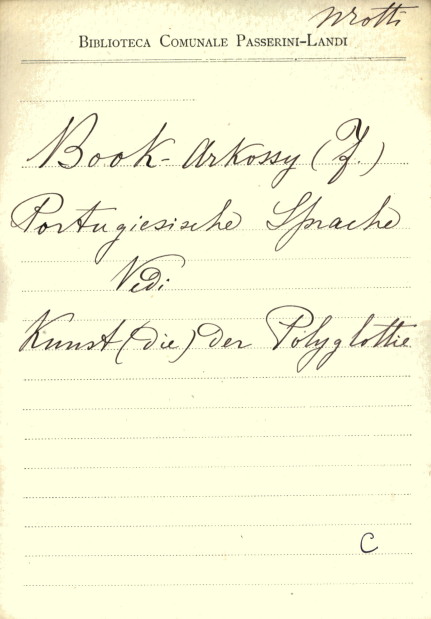 Wrotti
BIBLIOTECA COMUNALE PASSERINI-LANDI
Book-Arkossy (F.)
Portugiesische Sprache
Vedi
Kunst (die) der Polyglottie
C